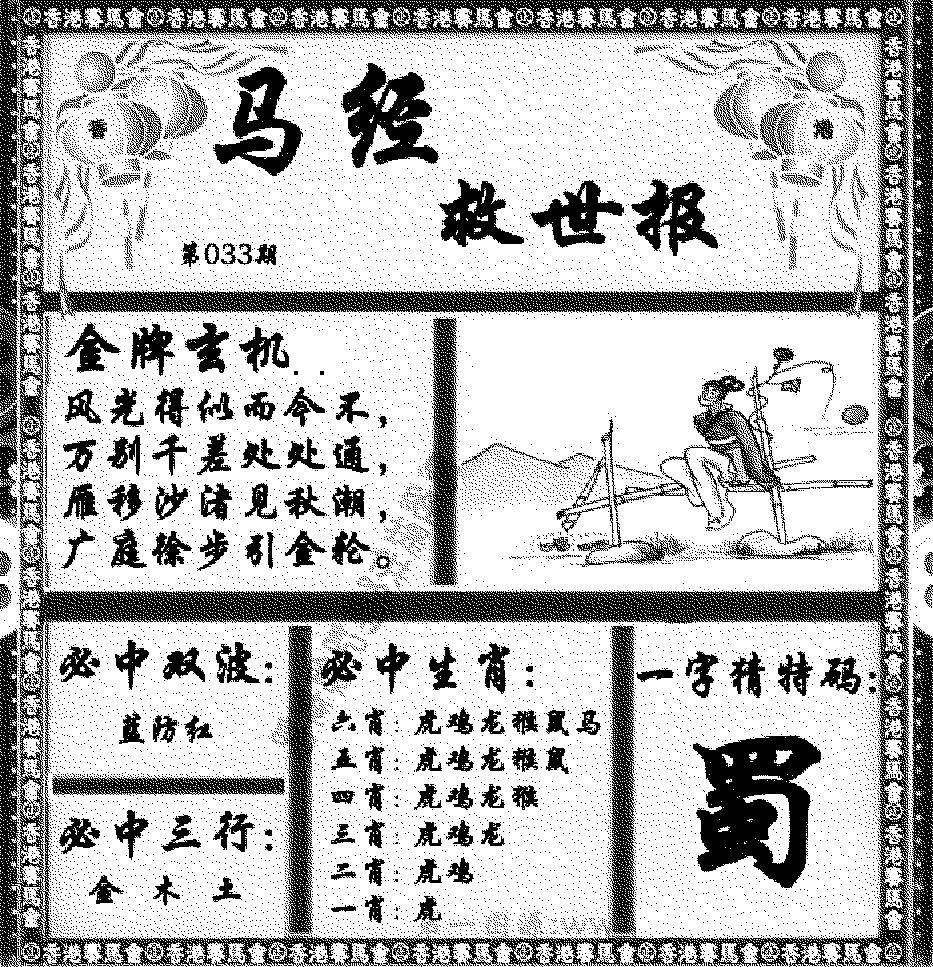 香港賽馬會香港賽馬會香港賽馬會香港賽馬會香港賽馬會香港賽馬會香港賽馬會
香
港
马经
救世报
第033期
金牌玄机..
风光得似而今不，
万别千差处处通，
雁移沙渚见秋潮，
广庭徐步引金轮。
必中双波：
蓝防红
必中三行：
金 木 土
必中生肖：
六肖：虎鸡龙猴鼠马
五肖：虎鸡龙猴鼠
四肖：虎鸡龙猴
三肖：虎鸡龙
二肖：虎鸡
一肖：虎
一字猜特码：
蜀
香港賽馬會香港賽馬會香港賽馬會香港賽馬會香港賽馬會香港賽馬會香港賽馬會